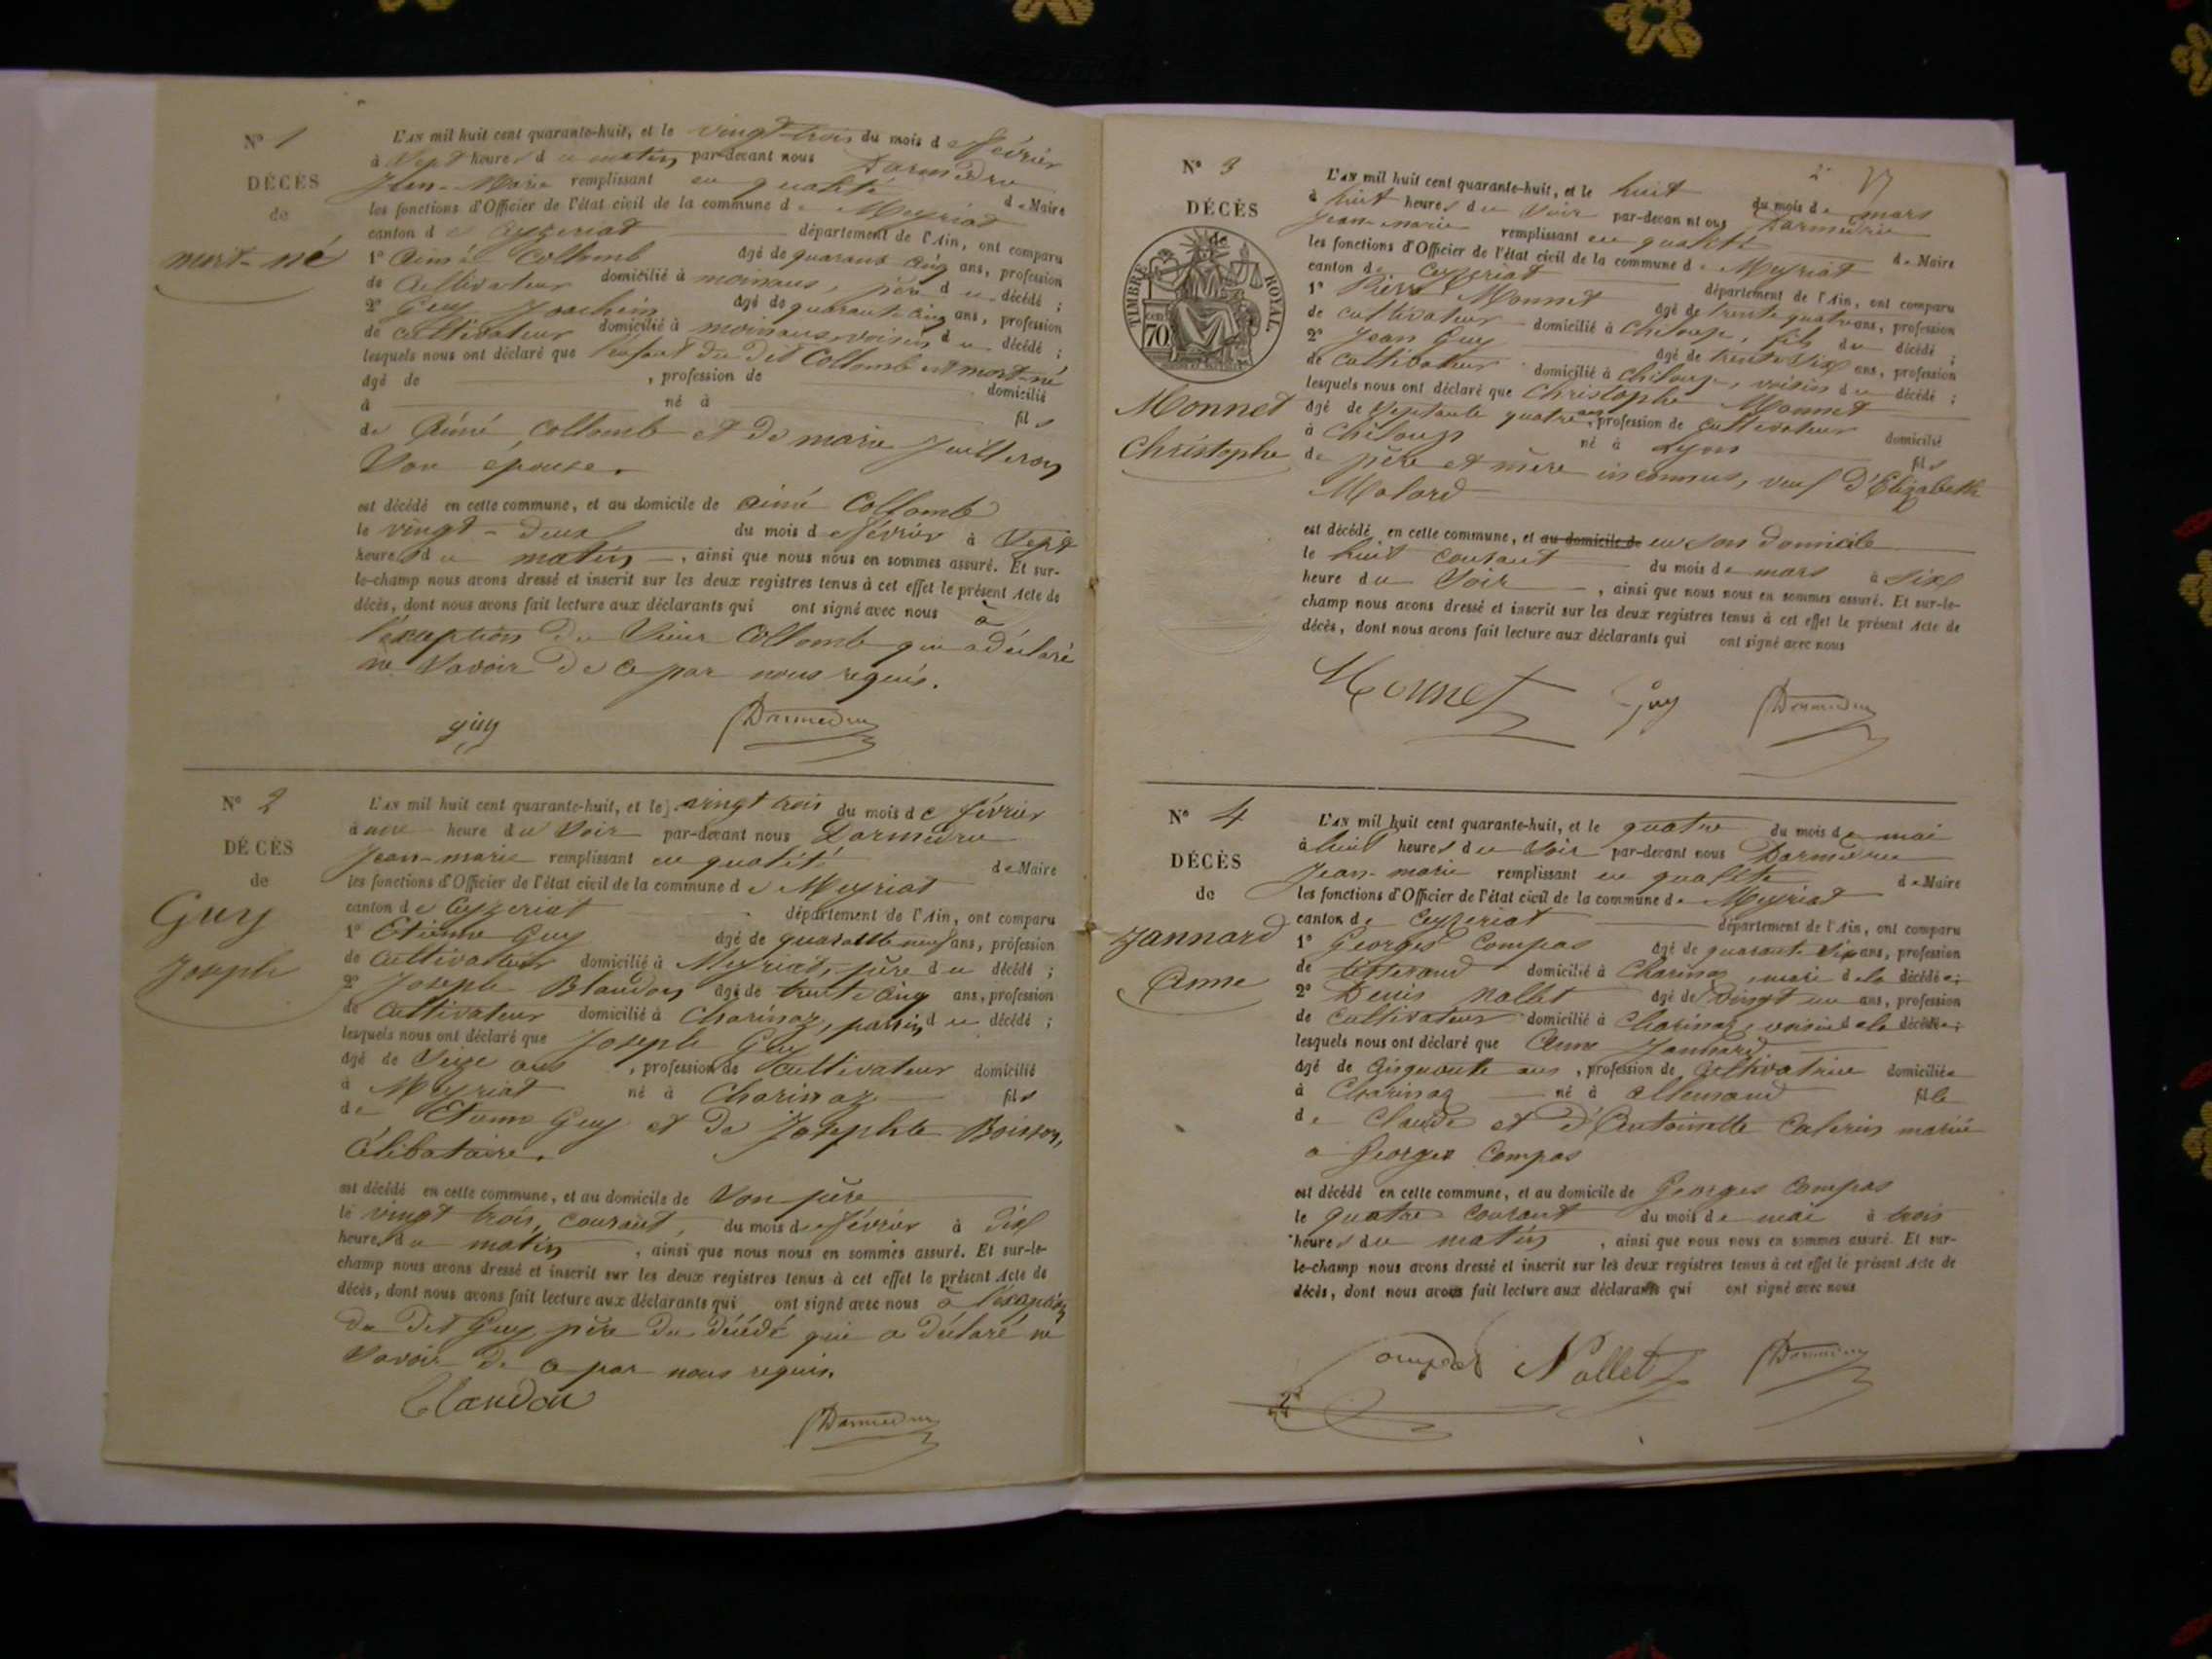 N° 1
DÉCÈS
de
mort-né
L'AN mil huit cent quarante-huit, et le vingt-trois du mois de février
à Sept heures du matin par-devant nous Darmedru
Jean-Marie remplissant en qualité de Maire
les fonctions d'Officier de l'état civil de la commune de Meyriat
canton de Ceyzeriat département de l'Ain, ont comparu
1° Aimé Collomb âgé de quarante cinq ans, profession
de Cultivateur domicilié à moinans, père du décédé ;
2° Guy Joachim âgé de quarante cinq ans, profession
de cultivateur domicilié à moinans voisin du décédé ;
lesquels nous ont déclaré que l'enfant du dit Collomb est mort-né
âgé de , profession de domicilié
à né à fils
de Aimé Collomb et de marie Juilleron
Son épouse.
est décédé en cette commune, et au domicile de aimé Collomb
le vingt-deux du mois de février à Sept
heures du matin, ainsi que nous nous en sommes assuré. Et sur-
le-champ nous avons dressé et inscrit sur les deux registres tenus à cet effet le présent Acte de
décès, dont nous avons fait lecture aux déclarants qui ont signé avec nous à
l'exception du Sieur Collomb qui a déclaré
ne Savoir de ce par nous requis.
guy Darmedru
N° 2
DÉCÈS
de
Guy
Joseph
L'AN mil huit cent quarante-huit, et le vingt trois du mois de février
à une heure du Soir par-devant nous Darmedru
Jean-marie remplissant en qualité de Maire
les fonctions d'Officier de l'état civil de la commune de Meyriat
canton de Ceyzeriat département de l'Ain, ont comparu
1° Etienne Guy âgé de quarante neuf ans, profession
de Cultivateur domicilié à Meyriat, père du décédé ;
2° Joseph Blandon âgé de trente cinq ans, profession
de Cultivateur domicilié à Charinaz, parrin du décédé ;
lesquels nous ont déclaré que Joseph Guy
âgé de Seize ans, profession de Cultivateur domicilié
à Meyriat né à Charinaz fils
de Etienne Guy et de Josephte Boisson,
Célibataire.
est décédé en cette commune, et au domicile de Son père
le vingt trois, courant, du mois de février à dix
heures du matin, ainsi que nous nous en sommes assuré. Et sur-le-
champ nous avons dressé et inscrit sur les deux registres tenus à cet effet le présent Acte de
décès, dont nous avons fait lecture aux déclarants qui ont signé avec nous à l'exception
du dit Guy père du décédé qui a déclaré ne
Savoir de ce par nous requis.
Blandon Darmedru
N° 3
DÉCÈS
de
TIMBRE ROYAL
70
Monnet
Christophe
L'AN mil huit cent quarante-huit, et le huit du mois de mars
à huit heures du Soir par-devan nt ous Darmedru
Jean-marie remplissant en qualité de Maire
les fonctions d'Officier de l'état civil de la commune de Meyriat
canton de Ceyzeriat département de l'Ain, ont comparu
1° Pierre Monnet âgé de trente quatre ans, profession
de cultivateur domicilié à Chiloup, fils du décédé ;
2° Jean Guy âgé de trente Six ans, profession
de Cultivateur domicilié à Chiloup, voisin du décédé ;
lesquels nous ont déclaré que Christophe Monnet
âgé de Septante quatre ans, profession de Cultivateur domicilié
à Chiloup né à Lyon fils
de père et mère inconnus, veuf d'Elizabeth
Molard
est décédé en cette commune, et au domicile de en son domicile
le huit courant du mois de mars à Six
heure du Soir, ainsi que nous nous en sommes assuré. Et sur-le-
champ nous avons dressé et inscrit sur les deux registres tenus à cet effet le présent Acte de
décès, dont nous avons fait lecture aux déclarants qui ont signé avec nous
Monnet Guy Darmedru
N° 4
DÉCÈS
de
Jannard
Anne
L'AN mil huit cent quarante-huit, et le quatre du mois de mai
à huit heures du Soir par-devant nous Darmedru
Jean-marie remplissant en qualité de Maire
les fonctions d'Officier de l'état civil de la commune de Meyriat
canton de Ceyzeriat département de l'Ain, ont comparu
1° Georges Compas âgé de quarante Six ans, profession
de tisserand domicilié à Charinaz, mari de la décédée ;
2° Denis Nallet âgé de Vingt un ans, profession
de Cultivateur domicilié à Charinaz, voisin de la décédée ;
lesquels nous ont déclaré que Anne Jannard
âgé de Cinquante ans, profession de Cultivatrice domiciliée
à Charinaz né à Allemand fille
de Claude et d'Antoinette Calerin mariée
a Georges Compas
est décédé en cette commune, et au domicile de Georges Compas
le quatre courant du mois de mai à trois
heures du matin, ainsi que nous nous en sommes assuré. Et sur-
le-champ nous avons dressé et inscrit sur les deux registres tenus à cet effet le présent Acte de
décès, dont nous avons fait lecture aux déclarants qui ont signé avec nous
Compas Nallet Darmedru